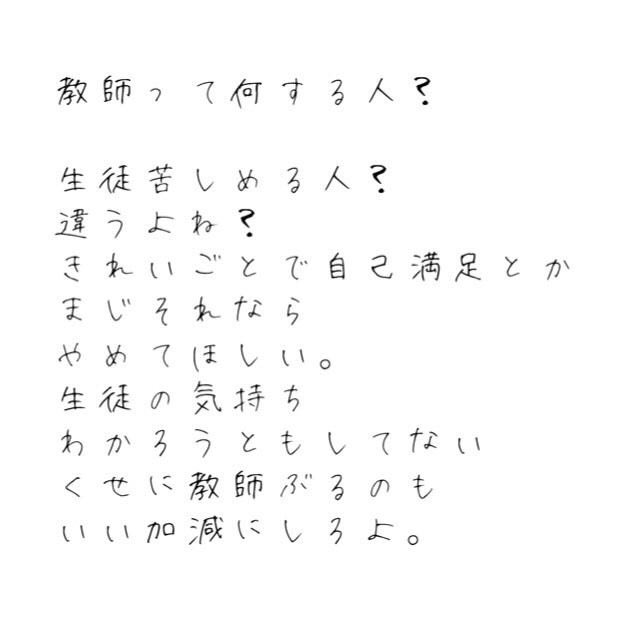 教師って何する人?
生徒苦しめる人?
違うよね?
きれいごとで自己満足とか
まじそれなら
やめてほしい。
生徒の気持ち
わかろうともしてない
くせに教師ぶるのも
いい加減にしろよ。